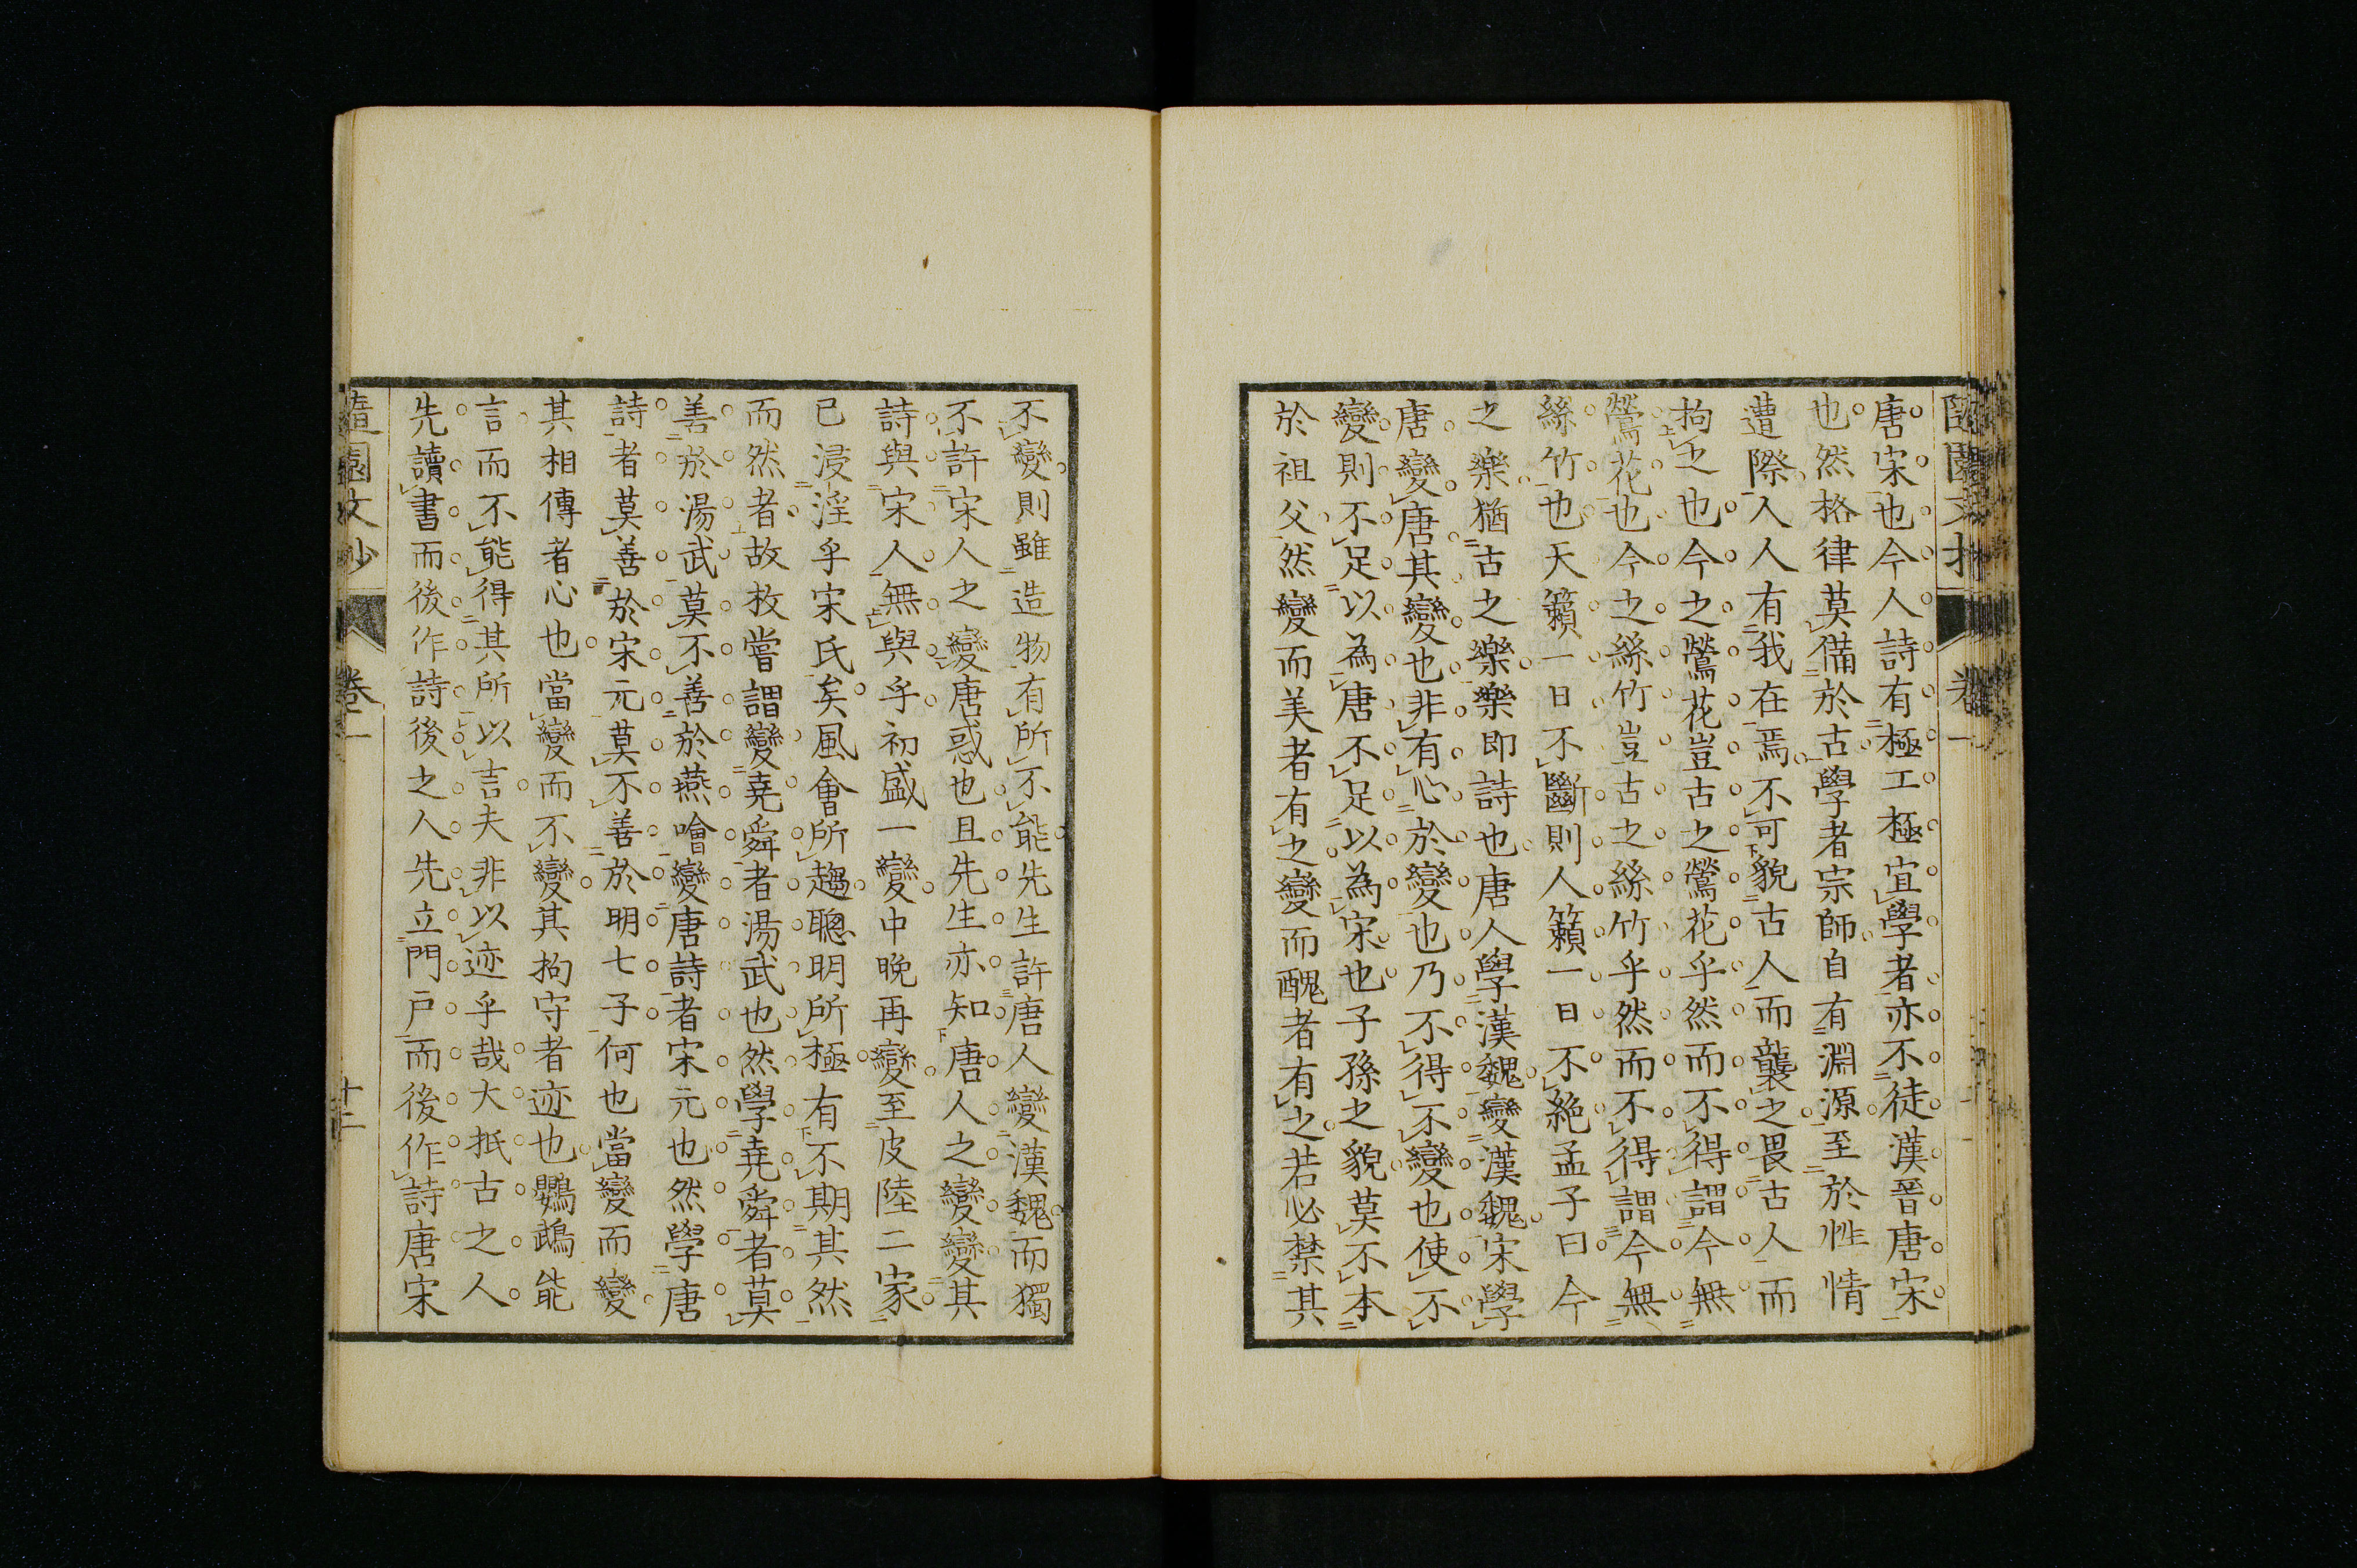 唐宋也今人詩有極工極宜學者亦不徒漢晉唐宋
也然格律莫備於古學者宗師自有淵源至於性情
遭際人人有我在焉不可貌古人而襲之畏古人而
拘之也今之鶯花豈古之鶯花乎然而不得謂今無
鶯花也今之絲竹豈古之絲竹乎然而不得謂今無
絲竹也天籟一日不斷則人籟一日不絕孟子曰今
之樂猶古之樂樂即詩也唐人學漢魏變漢魏宋學
唐變唐其變也非有心於變也乃不得不變也使不
變則不足以為唐不足以為宋也子孫之貌莫不本
於祖父然變而美者有之變而醜者有之若必禁其
不變則雖造物有所不能先生許唐人變漢魏而獨
不許宋人之變唐惑也且先生亦知唐人之變變其
詩與宋人無與乎初盛一變中晚再變至皮陸二家
已浸淫乎宋氏矣風會所趨聰明所極有不期其然
而然者故枚嘗謂變堯舜者湯武也然學堯舜者莫
善於湯武莫不善於燕噲變唐詩者宋元也然學唐
詩者莫善於宋元莫不善於明七子何也當變而變
其相傳者心也當變而不變其拘守者迹也鸚鵡能
言而不能得其所以言夫非以迹乎哉大抵古之人
先讀書而後作詩後之人先立門戶而後作詩唐宋
隨園文抄 卷一 十二